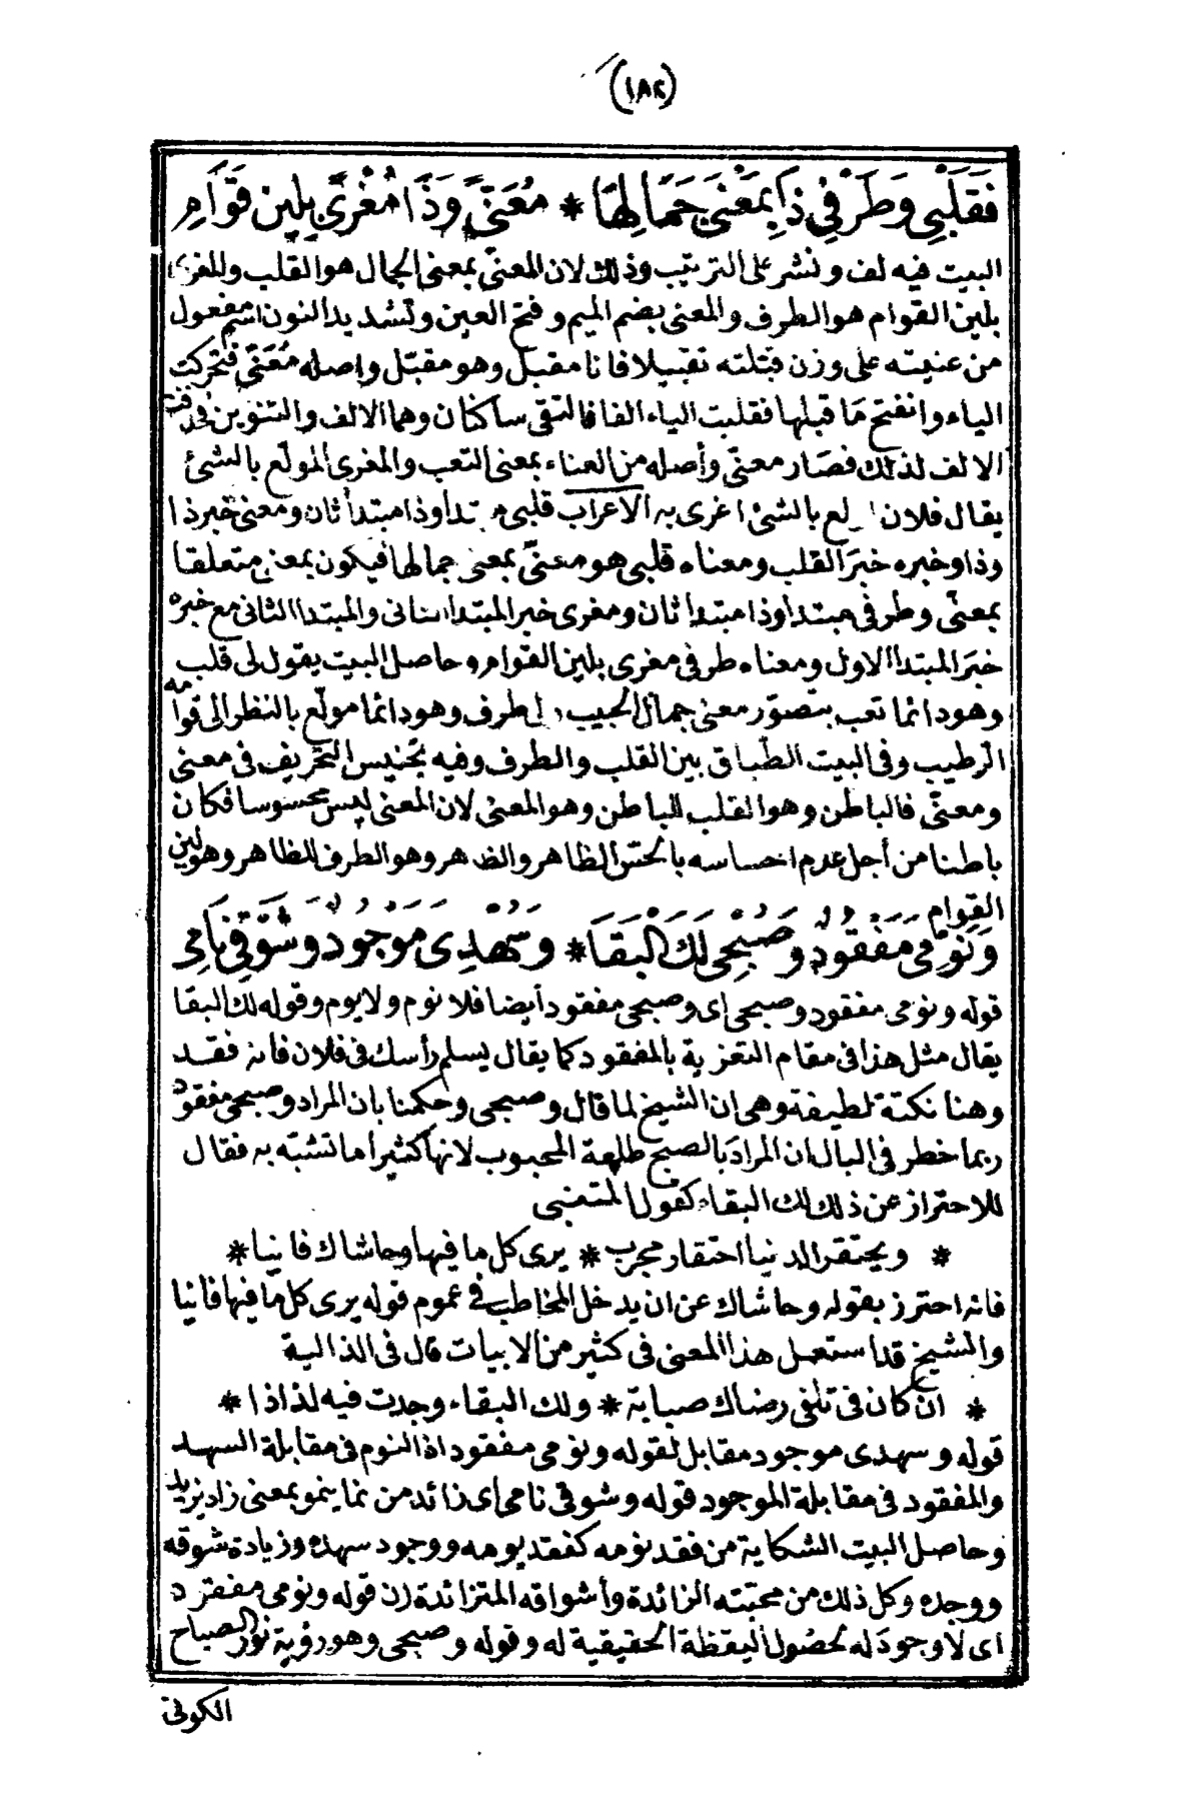 (١٨٢)
فَقَلْبِي وَطَرْفِي ذَا بِمَعْنَى جَمَالِهَا * مُعَنًّى وَذَا مُغْرًى بِلِينِ قَوَامِ
البيت فيه لف ونشر على الترتيب وذلك لان المعنىّ بمعنى الجمال هو القلب والمغرى
بلين القوام هو الطرف والمعنى بضم الميم وفتح العين وتشديد النون اسم مفعول
من عنيته على وزن قبتلته تقبيلا فانا مقبل وهو مقبتل واصله مُعَنَّىٌ فتحركت
الياء وانفتح مَا قبلها فقلبت الياء الفا فالتقى ساكنان وهما الالف والتنوين فحذفت
الالف لذلك فصَار معنّى وأصله من العناء بمعنى التعب والمغرى المولّع بالشئ
يقال فلان لع بالشئ اغرى به الاعراب قلبى تدأ وذا مبتدأ ثان ومعنى خبر ذا
وذا وخبره خبرَ القلب ومعناه قلبى هو معنىّ بمعنى جمالها فيكون بمعنى متعلقا
بمعنّى وطرفى مبتدا وذا مبتدا ثان ومغرى خبر المبتدا الثانى والمبتدا الثانى مع خبره
خبرَ المبتدا الاول ومعناه طرفى مغرى بلين القوام وحاصل البيت يقول لى قلب
وهو دائما تعب بتصوّر معنى جمال الحبيب و لى طرف وهو دائما مولّع بالنظر الى قوامه
الرطيب وفى البيت الطّباق بين القلب والطرف وفيه تجنيس التحريف فى معنى
ومعنّى فالباطن وهو القلب للباطن وهو المعنى لان المعنى ليس محسوسا فكان
باطنا من أجل عدم احساسه بالحسّ الظاهر والظاهر وهو الطرف للظاهر وهو لين
القوام
وَنَوْمِى مَفْقُودٌ وَصُبْحِى لَكَ الْبَقَا * وَسُهْدِى مَوْجُودٌ وَشَوْقِىَ نَامِى
قوله ونومى مفقود وصبحى اى وصبحى مفقود أيضا فلا نوم ولا يوم وقوله لك البقا
يقال مثل هذا فى مقام التعزية بالمفقود كما يقال يسلم رأسك فى فلان فانه فقد
وهنا نكتة لطيفة وهى ان الشيخ لما قال وصبحى وحكمنا بان المراد وصبحى مفقود
ربما خطر فى البال ان المرادَ بالصبح طلعة المحبوب لانها كثيرا ما تشبّه به فقال
للاحتراز عن ذلك لك البقاء كقول المتنبى
* ويحتقر الدنيا احتقار مجرب * يرى كل ما فيها وحاشاك فانيا *
فانه احترز بقوله وحاشاك عن ان يدخل المخاطب فى عموم قوله يرى كل ما فيها فانيا
والشيخ قد استعمل هذا المعنى فى كثير من الابيات قال فى الذالية
* ان كان فى تلفى رضاك صبابة * ولك البقاء وجدت فيه لذاذا *
قوله وسهدى موجود مقابل لقوله ونومى مفقود اذ النوم فى مقابلة السهد
والمفقود فى مقابلة الموجود قوله وشوقى نامى اى زائد من نما ينمو بمعنى زاد يزيد
وحاصل البيت الشكاية من فقد نومه كفقد يومه ووجود سهده وزيادة شوقه
ووجده وكل ذلك من محبّته الزائدة وأشواقه المتزائدة (ن قوله ونومى مفقود
اى لا وجودَ له لحصُول اليقظة الحقيقية له وقوله وصبحى وهو رؤية نور الصباح
الكونى